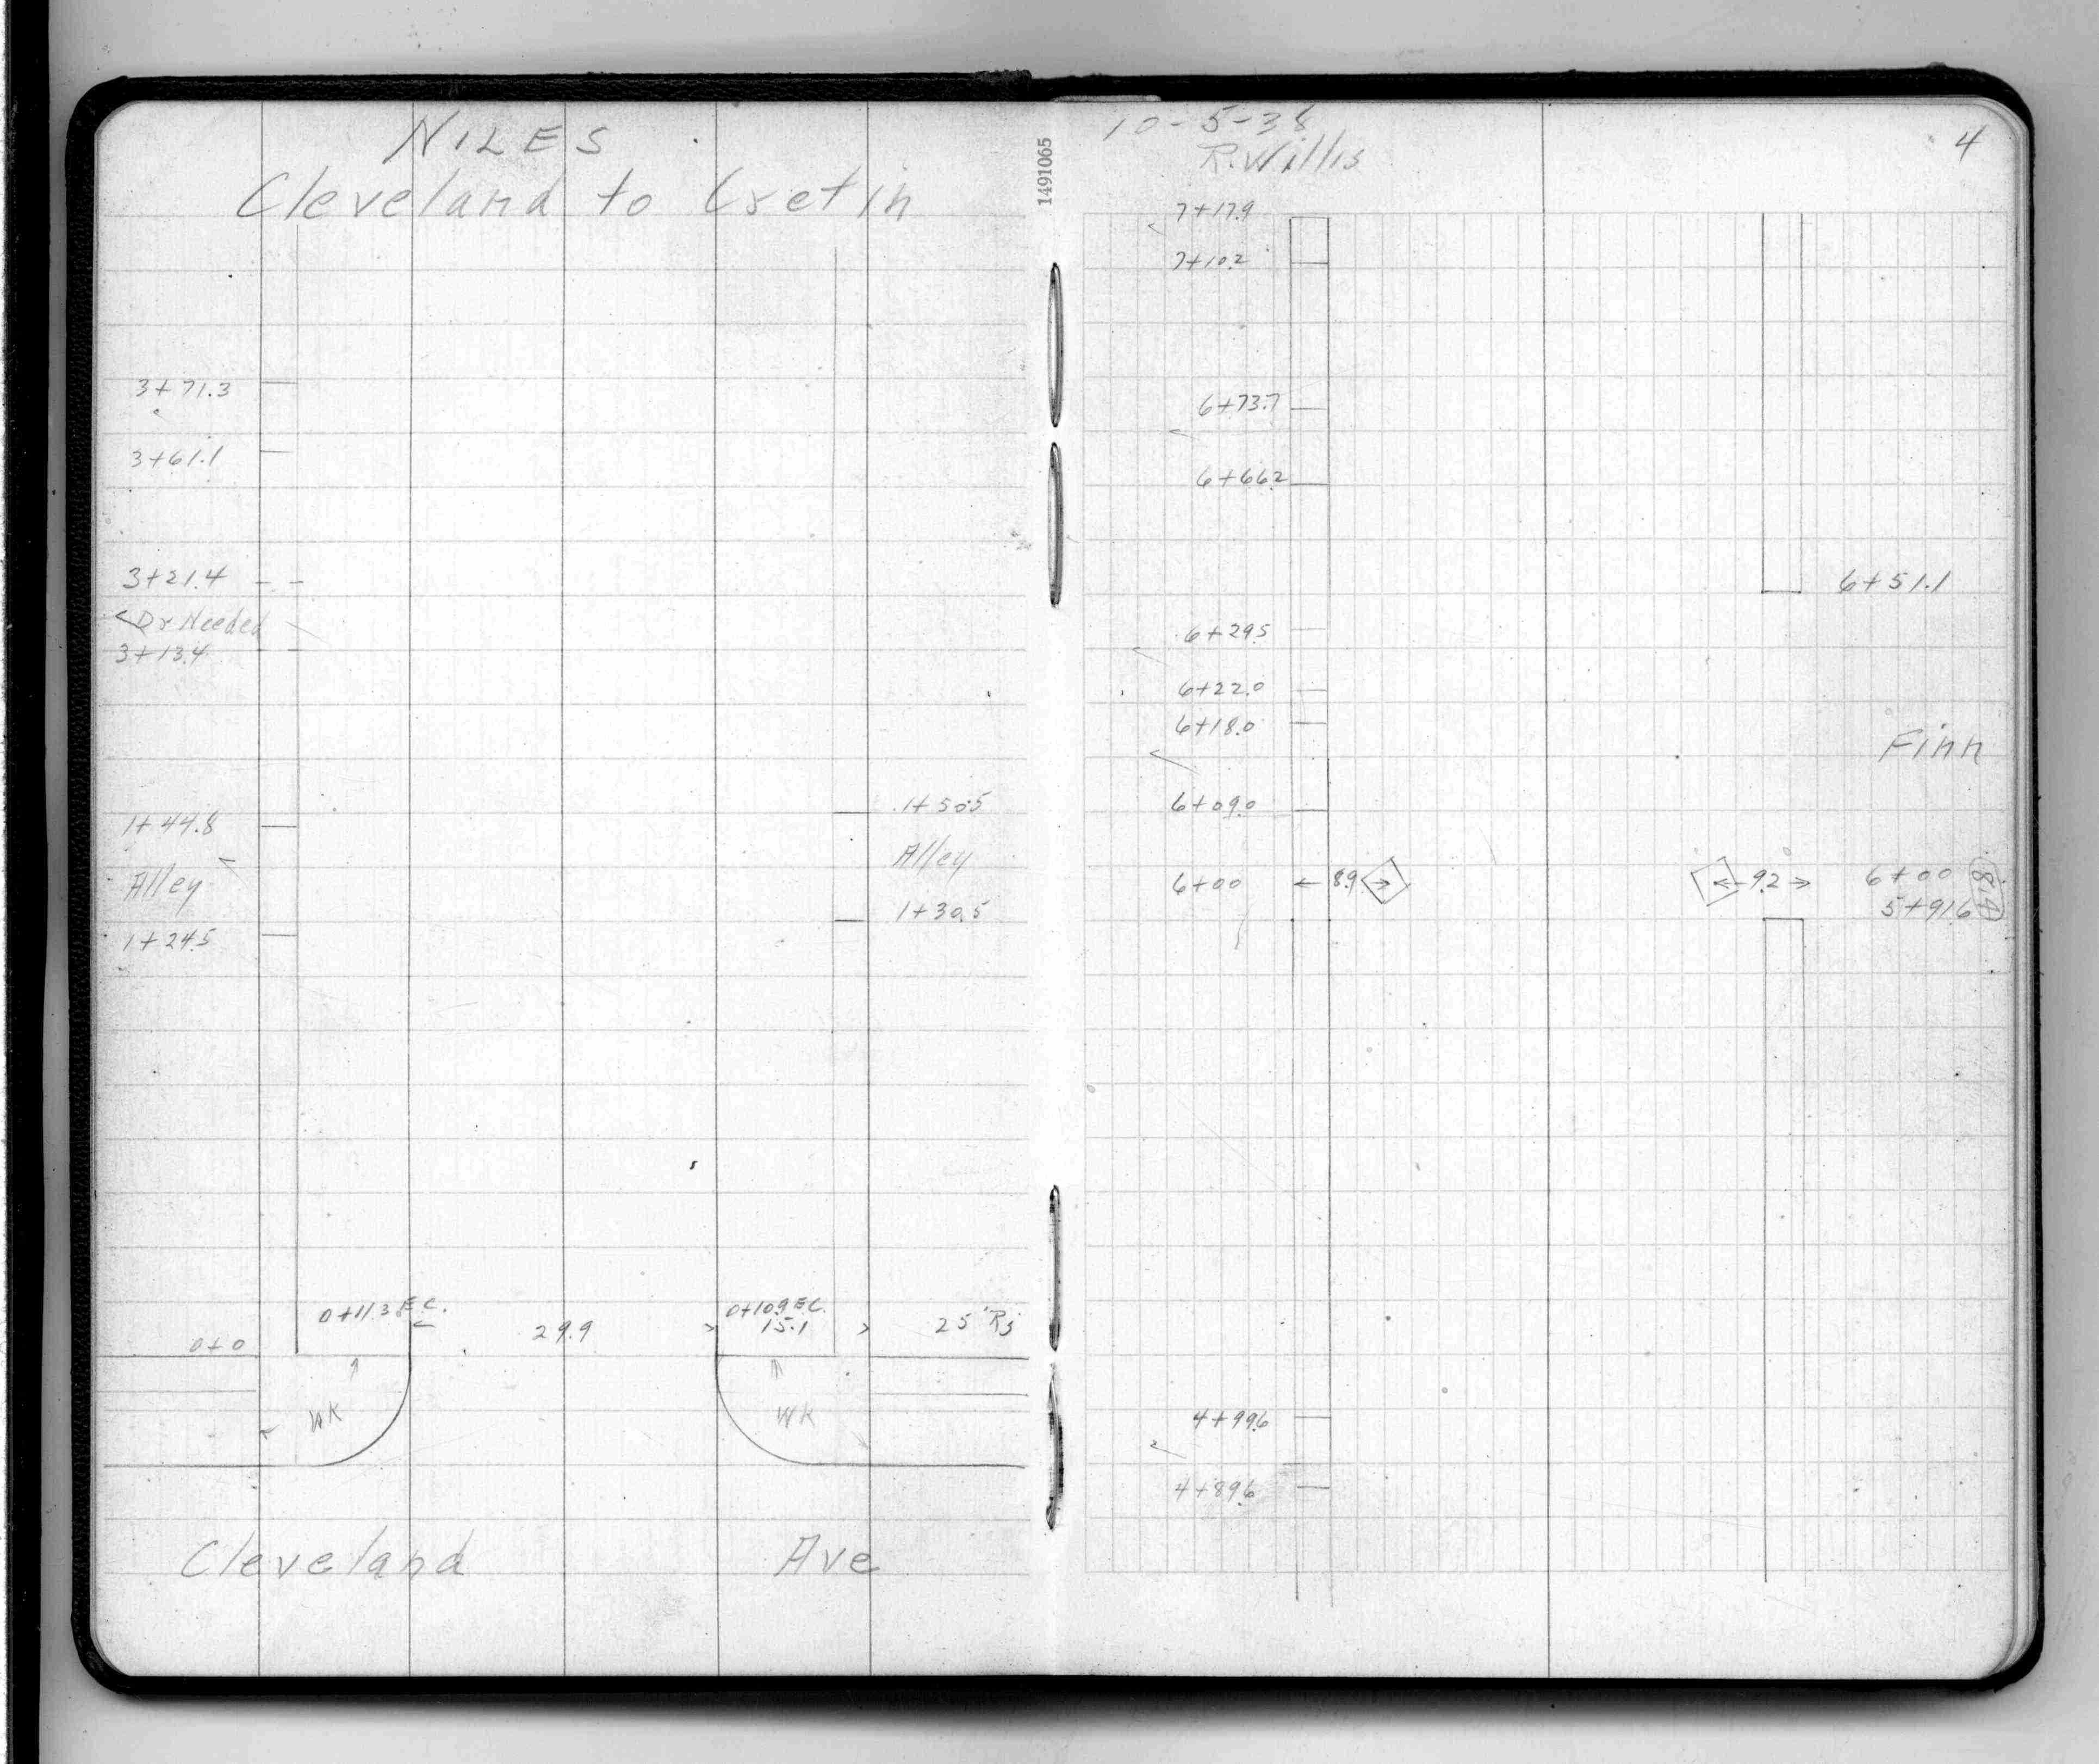 NILES
Cleveland to Cretin
3+71.3
3+61.1
3+21.4
Dr Needed
3+13.4
1+44.8
Alley
1+24.5
1+50.5
Alley
1+30.5
0+11.3 E.C.
0+10.9 E.C.
0+0
29.9
15.1
25' R
WK
WK
Cleveland Ave
1491065
10-5-38
R. Willis
4
7+17.9
7+10.2
6+73.7
6+66.2
6+51.1
6+29.5
6+22.0
6+18.0
Finn
6+09.0
6+00
8.9
9.2
6+00
5+91.6
8.4
4+99.6
4+89.6